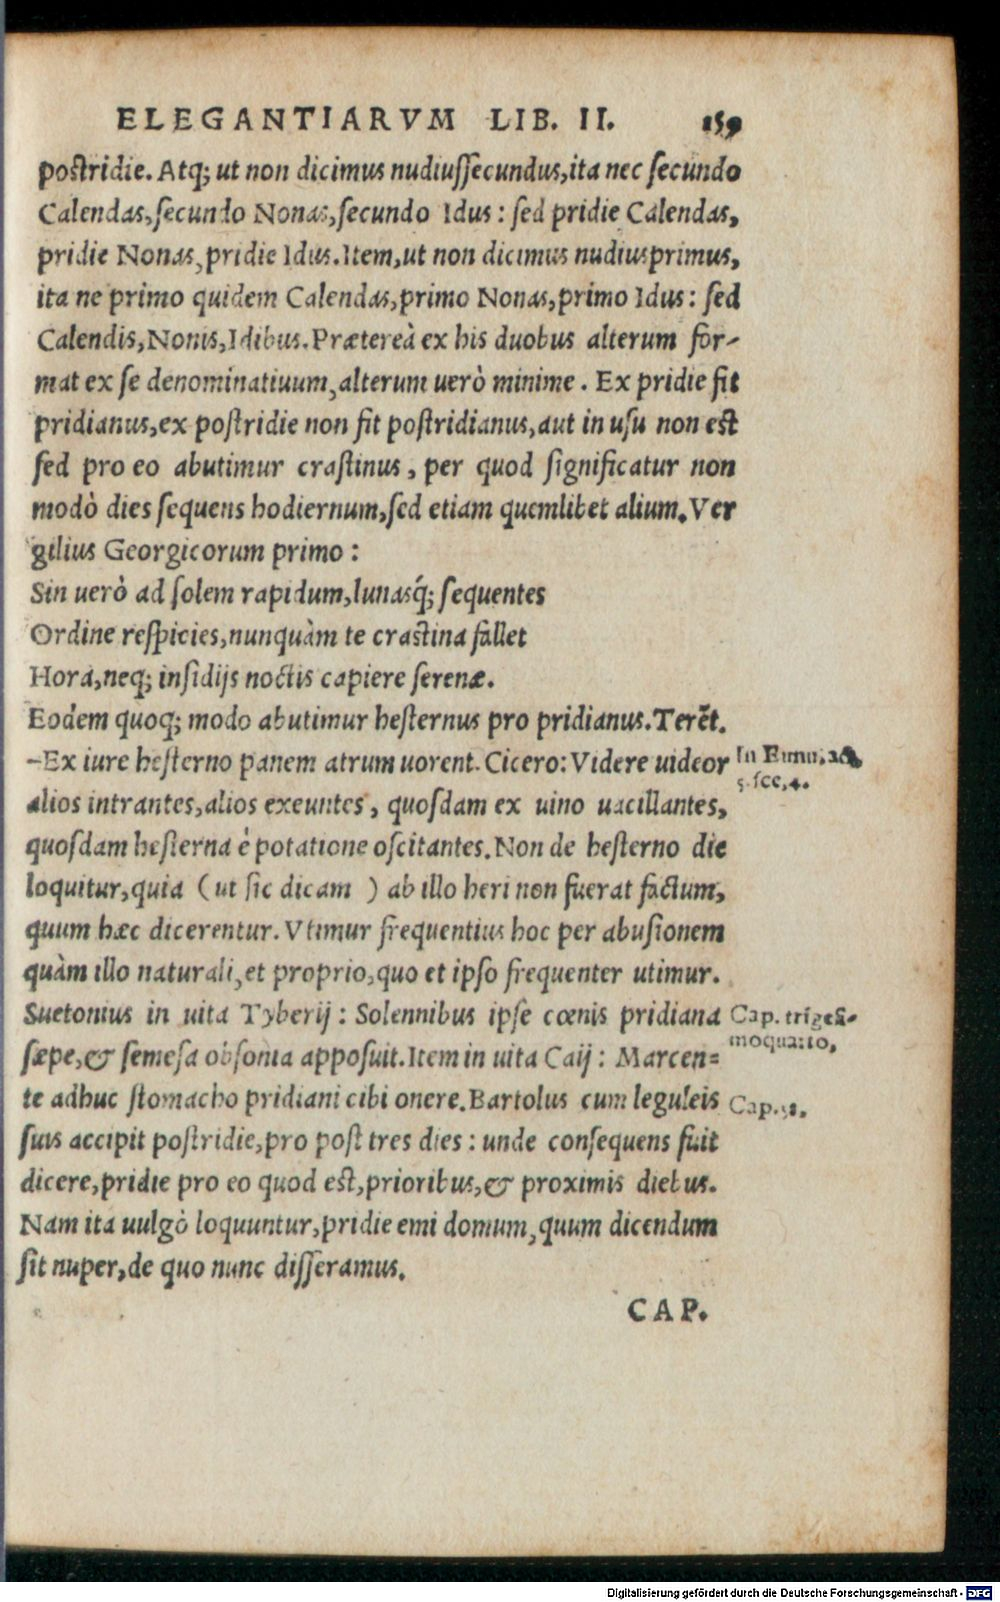 ELEGANTIARVM LIB. II. 159
postridie. Atq; ut non dicimus nudiussecundus, ita nec secundo
Calendas, secundo Nonas, secundo Idus: sed pridie Calendas,
pridie Nonas, pridie Idus. Item, ut non dicimus nudiusprimus,
ita ne primo quidem Calendas, primo Nonas, primo Idus: sed
Calendis, Nonis, Idibus. Prætereà ex his duobus alterum for-
mat ex se denominatiuum, alterum uerò minime. Ex pridie fit
pridianus, ex postridie non fit postridianus, aut in usu non est
sed pro eo abutimur crastinus, per quod significatur non
modò dies sequens hodiernum, sed etiam quemlibet alium. Ver
gilius Georgicorum primo:
Sin uerò ad solem rapidum, lunasq́; sequentes
Ordine respicies, nunquàm te crastina fallet
Hora, neq; insidijs noctis capiere serenæ.
Eodem quoq; modo abutimur hesternus pro pridianus. Terēt.
-Ex iure hesterno panem atrum uorent. Cicero: Videre uideor
In Eunu. act.
5. sce, 4.
alios intrantes, alios exeuntes, quosdam ex uino uacillantes,
quosdam hesterna è potatione oscitantes. Non de hesterno die
loquitur, quia (ut sic dicam ) ab illo heri non fuerat factum,
quum hæc dicerentur. Vtimur frequentius hoc per abusionem
quàm illo naturali, et proprio, quo et ipso frequenter utimur.
Suetonius in uita Tyberij: Solennibus ipse cœnis pridiana
Cap. trigesi-
moquarto,
sæpe, & semesa obsonia apposuit. Item in uita Caij: Marcen=
te adhuc stomacho pridiani cibi onere. Bartolus cum leguleis
Cap. 58.
suis accipit postridie, pro post tres dies: unde consequens fuit
dicere, pridie pro eo quod est, prioribus, & proximis diebus.
Nam ita uulgò loquuntur, pridie emi domum, quum dicendum
sit nuper, de quo nunc disseramus.
CAP.
Digitalisierung gefördert durch die Deutsche Forschungsgemeinschaft - DFG